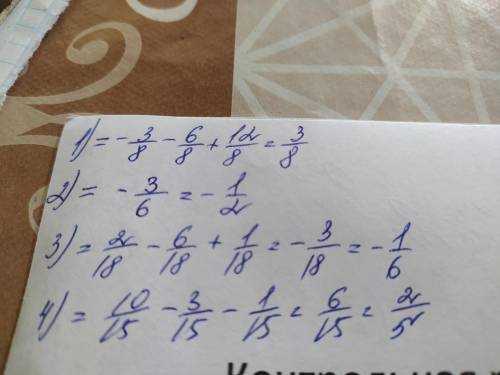 1) = - 3/8 - 6/8 + 12/8 = 3/8
2) = - 3/6 = - 1/2
3) = 2/18 - 6/18 + 1/18 = - 3/18 = - 1/6
4) = 10/15 - 3/15 - 1/15 = 6/15 = 2/5